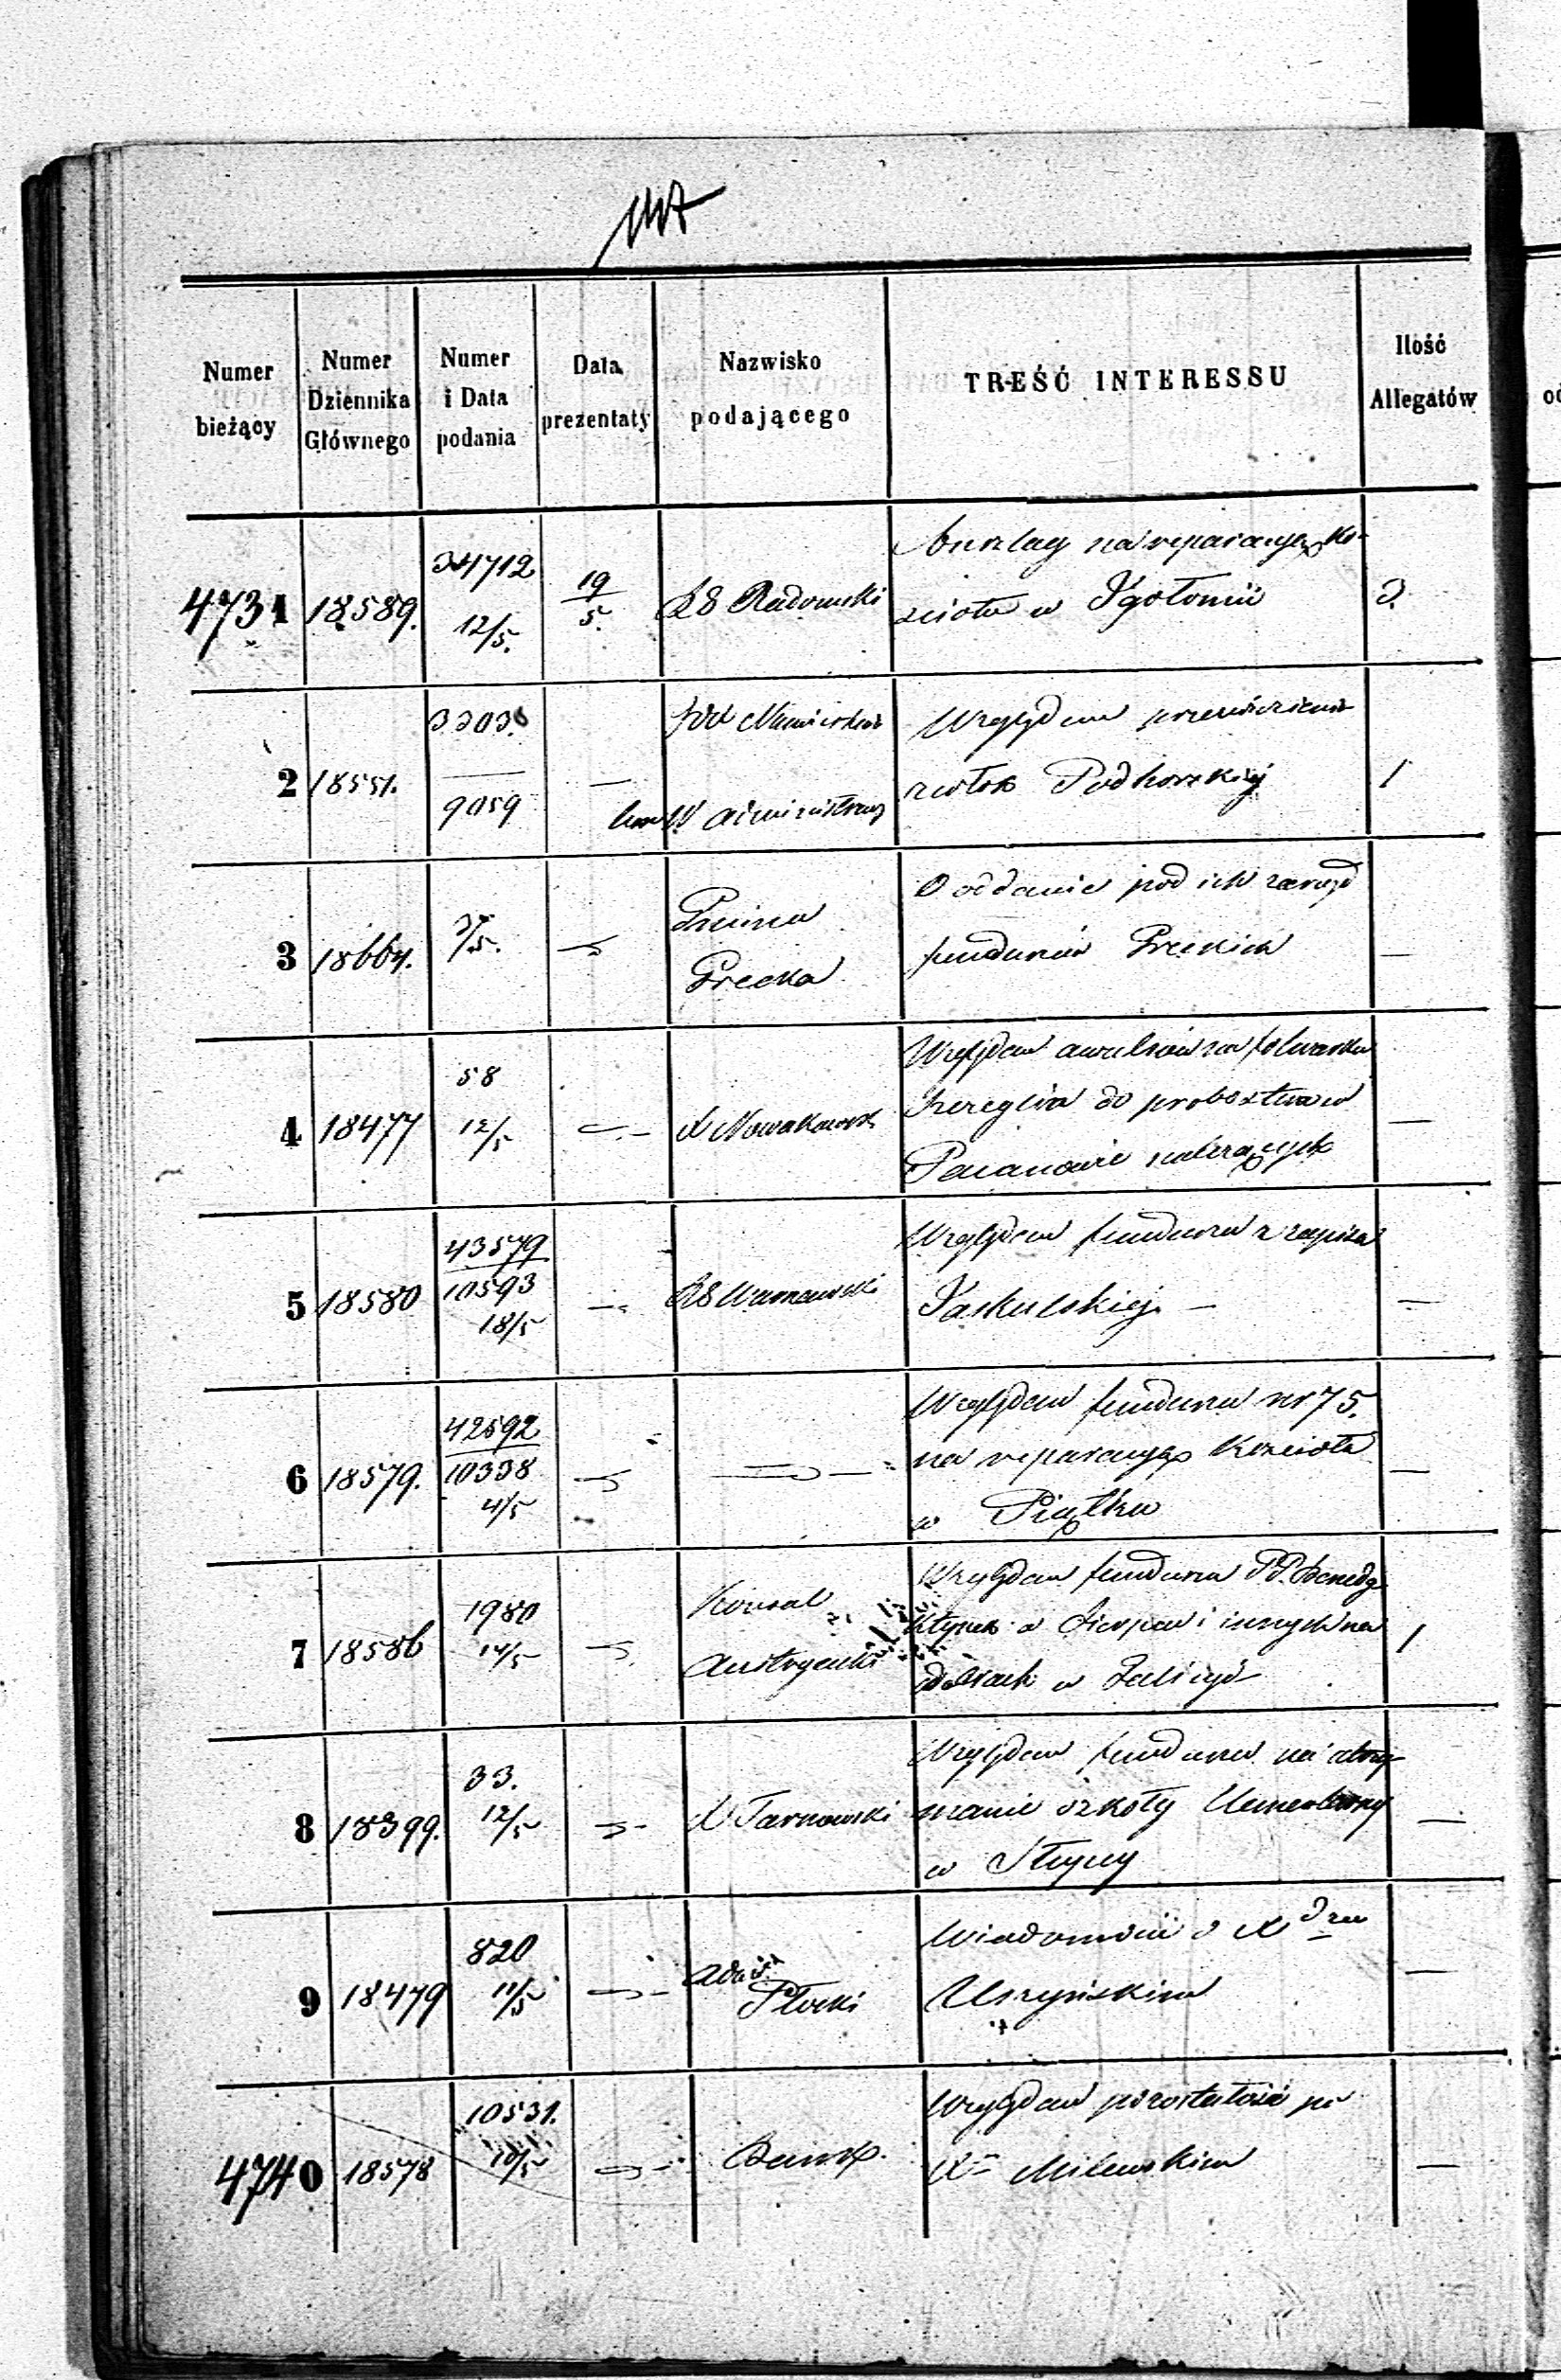 Numer bieżący
Numer Dziennika Głównego
Numer i Data podania
Data prezentaty
Nazwisko podającego
TREŚĆ INTERESSU
Ilość Allegatów
4731 18589. 34712 12/5. 19/5. RG Radomski
Anszlag na reparacyą ko-
ścioła w Igołomii
3.
2 18551. 3303. 9059 —
Względem przewiezienia
zwłok Podhorskiéj
1
3 18664. 3/5.
Gmina
Grecka
O oddanie pod ich zarząd
funduszów Greckich
—
4 18477 58 12/5 X Nowakowski
Względem awulsów na folwarku
do probostwa w
Pacanowie należących
—
5 18580 43579 10593 18/5 RG Warszawski
Względem funduszu z zapisu
Jaskulskiej —
—
6 18579. 42592 10338 4/5
Względem funduszu rsr 75.
na reparacyą Kościoła
w Piątku
—
7 18586 1980 14/5
Konsul
Austryacki
Względem funduszu PP. Benedy-
ktynek w Sierpcu i innych na
dobrach w Galicyi
1
8 18399. 33. 12/5 X Tarnowski
Względem funduszu na utrzy-
manie szkoły Elementarnej
w Słupcy
—
9 18479 820 11/5
Płocki
Wiadomość o X
—
4740 18578 10531. 10/5 Bank
Względem pozostałości po
Xu Milewskim
—